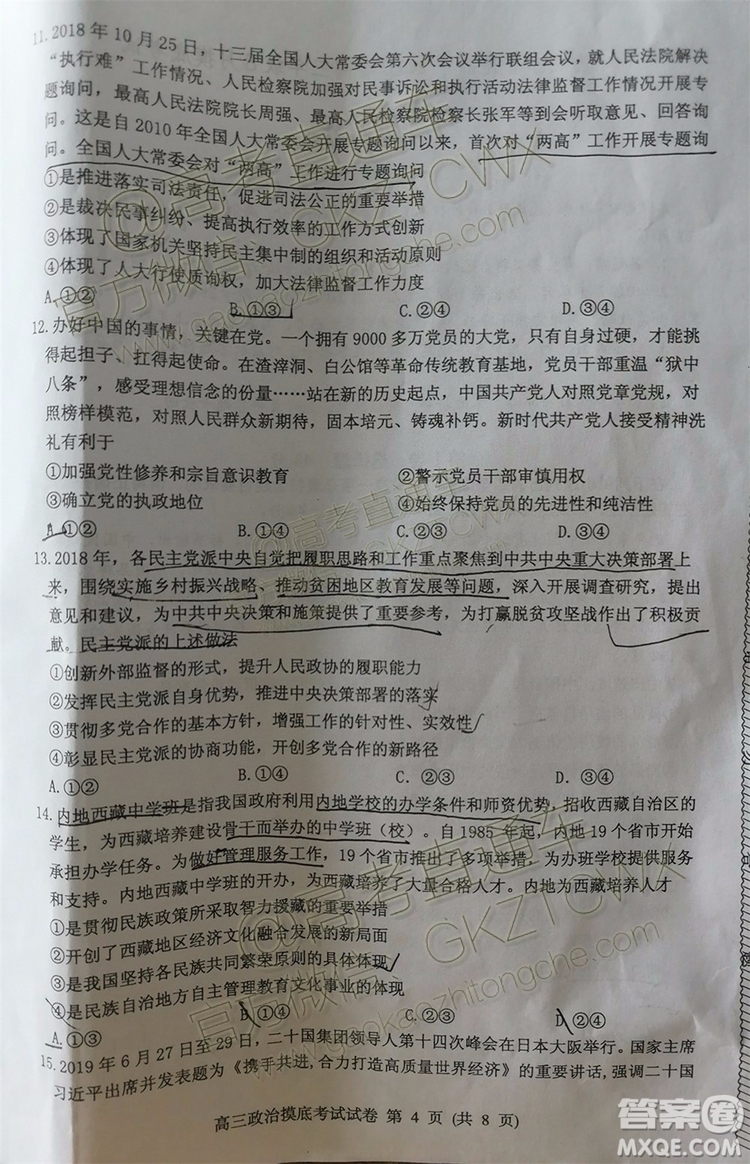 11. 2018 年 10 月 25 日，十三届全国人大常委会第六次会议举行联组会议，就人民法院解决
“执行难”工作情况、人民检察院加强对民事诉讼和执行活动法律监督工作情况开展专
题询问，最高人民法院院长周强、最高人民检察院检察长张军等到会听取意见、回答询
问。这是自 2010 年全国人大常委会开展专题询问以来，首次对“两高”工作开展专题询
问。全国人大常委会对“两高”工作进行专题询问
①是推进落实司法责任，促进司法公正的重要举措
②是裁决民事纠纷、提高执行效率的工作方式创新
③体现了国家机关坚持民主集中制的组织和活动原则
④体现了人大行使质询权，加大法律监督工作力度
A.①② B.①③ C.②④ D.③④
12. 办好中国的事情，关键在党。一个拥有 9000 多万党员的大党，只有自身过硬，才能挑
得起担子、扛得起使命。在渣滓洞、白公馆等革命传统教育基地，党员干部重温“狱中
八条”，感受理想信念的份量……站在新的历史起点，中国共产党人对照党章党规，对
照榜样模范，对照人民群众新期待，固本培元、铸魂补钙。新时代共产党人接受精神洗
礼有利于
①加强党性修养和宗旨意识教育 ②警示党员干部审慎用权
③确立党的执政地位 ④始终保持党员的先进性和纯洁性
A.①② B.①④ C.②③ D.③④
13. 2018 年，各民主党派中央自觉把履职思路和工作重点聚焦到中共中央重大决策部署上
来，围绕实施乡村振兴战略、推动贫困地区教育发展等问题，深入开展调查研究，提出
意见和建议，为中共中央决策和施策提供了重要参考，为打赢脱贫攻坚战作出了积极贡
献。民主党派的上述做法
①创新外部监督的形式，提升人民政协的履职能力
②发挥民主党派自身优势，推进中央决策部署的落实
③贯彻多党合作的基本方针，增强工作的针对性、实效性
④彰显民主党派的协商功能，开创多党合作的新路径
A.①② B.①④ C.②③ D.③④
14. 内地西藏中学班是指我国政府利用内地学校的办学条件和师资优势，招收西藏自治区的
学生，为西藏培养建设骨干而举办的中学班（校）。自 1985 年起，内地 19 个省市开始
承担办学任务。为做好管理服务工作，19 个省市推出了多项举措，为办班提供保障
和支持。内地西藏中学班的开办，为西藏培养了大量合格人才。内地为西藏培养人才
①是贯彻民族政策所采取智力援藏的重要举措
②开创了西藏地区经济文化融合发展的新局面
③是我国坚持各民族共同繁荣原则的具体体现
④是民族自治地方自主管理教育文化事业的体现
A.①③ B.①④ C.②③ D.②④
15. 2019 年 6 月 27 日至 29 日，二十国集团领导人第十四次峰会在日本大阪举行。国家主席
习近平出席并发表题为《携手共进,合力打造高质量世界经济》的重要讲话,强调二十国
高三政治摸底考试试卷 第 4 页 (共 8 页)
@高考直通车
官方微信：GKZTCWX
www.gaokaozhitongche.com
答案圈
MXQE.COM